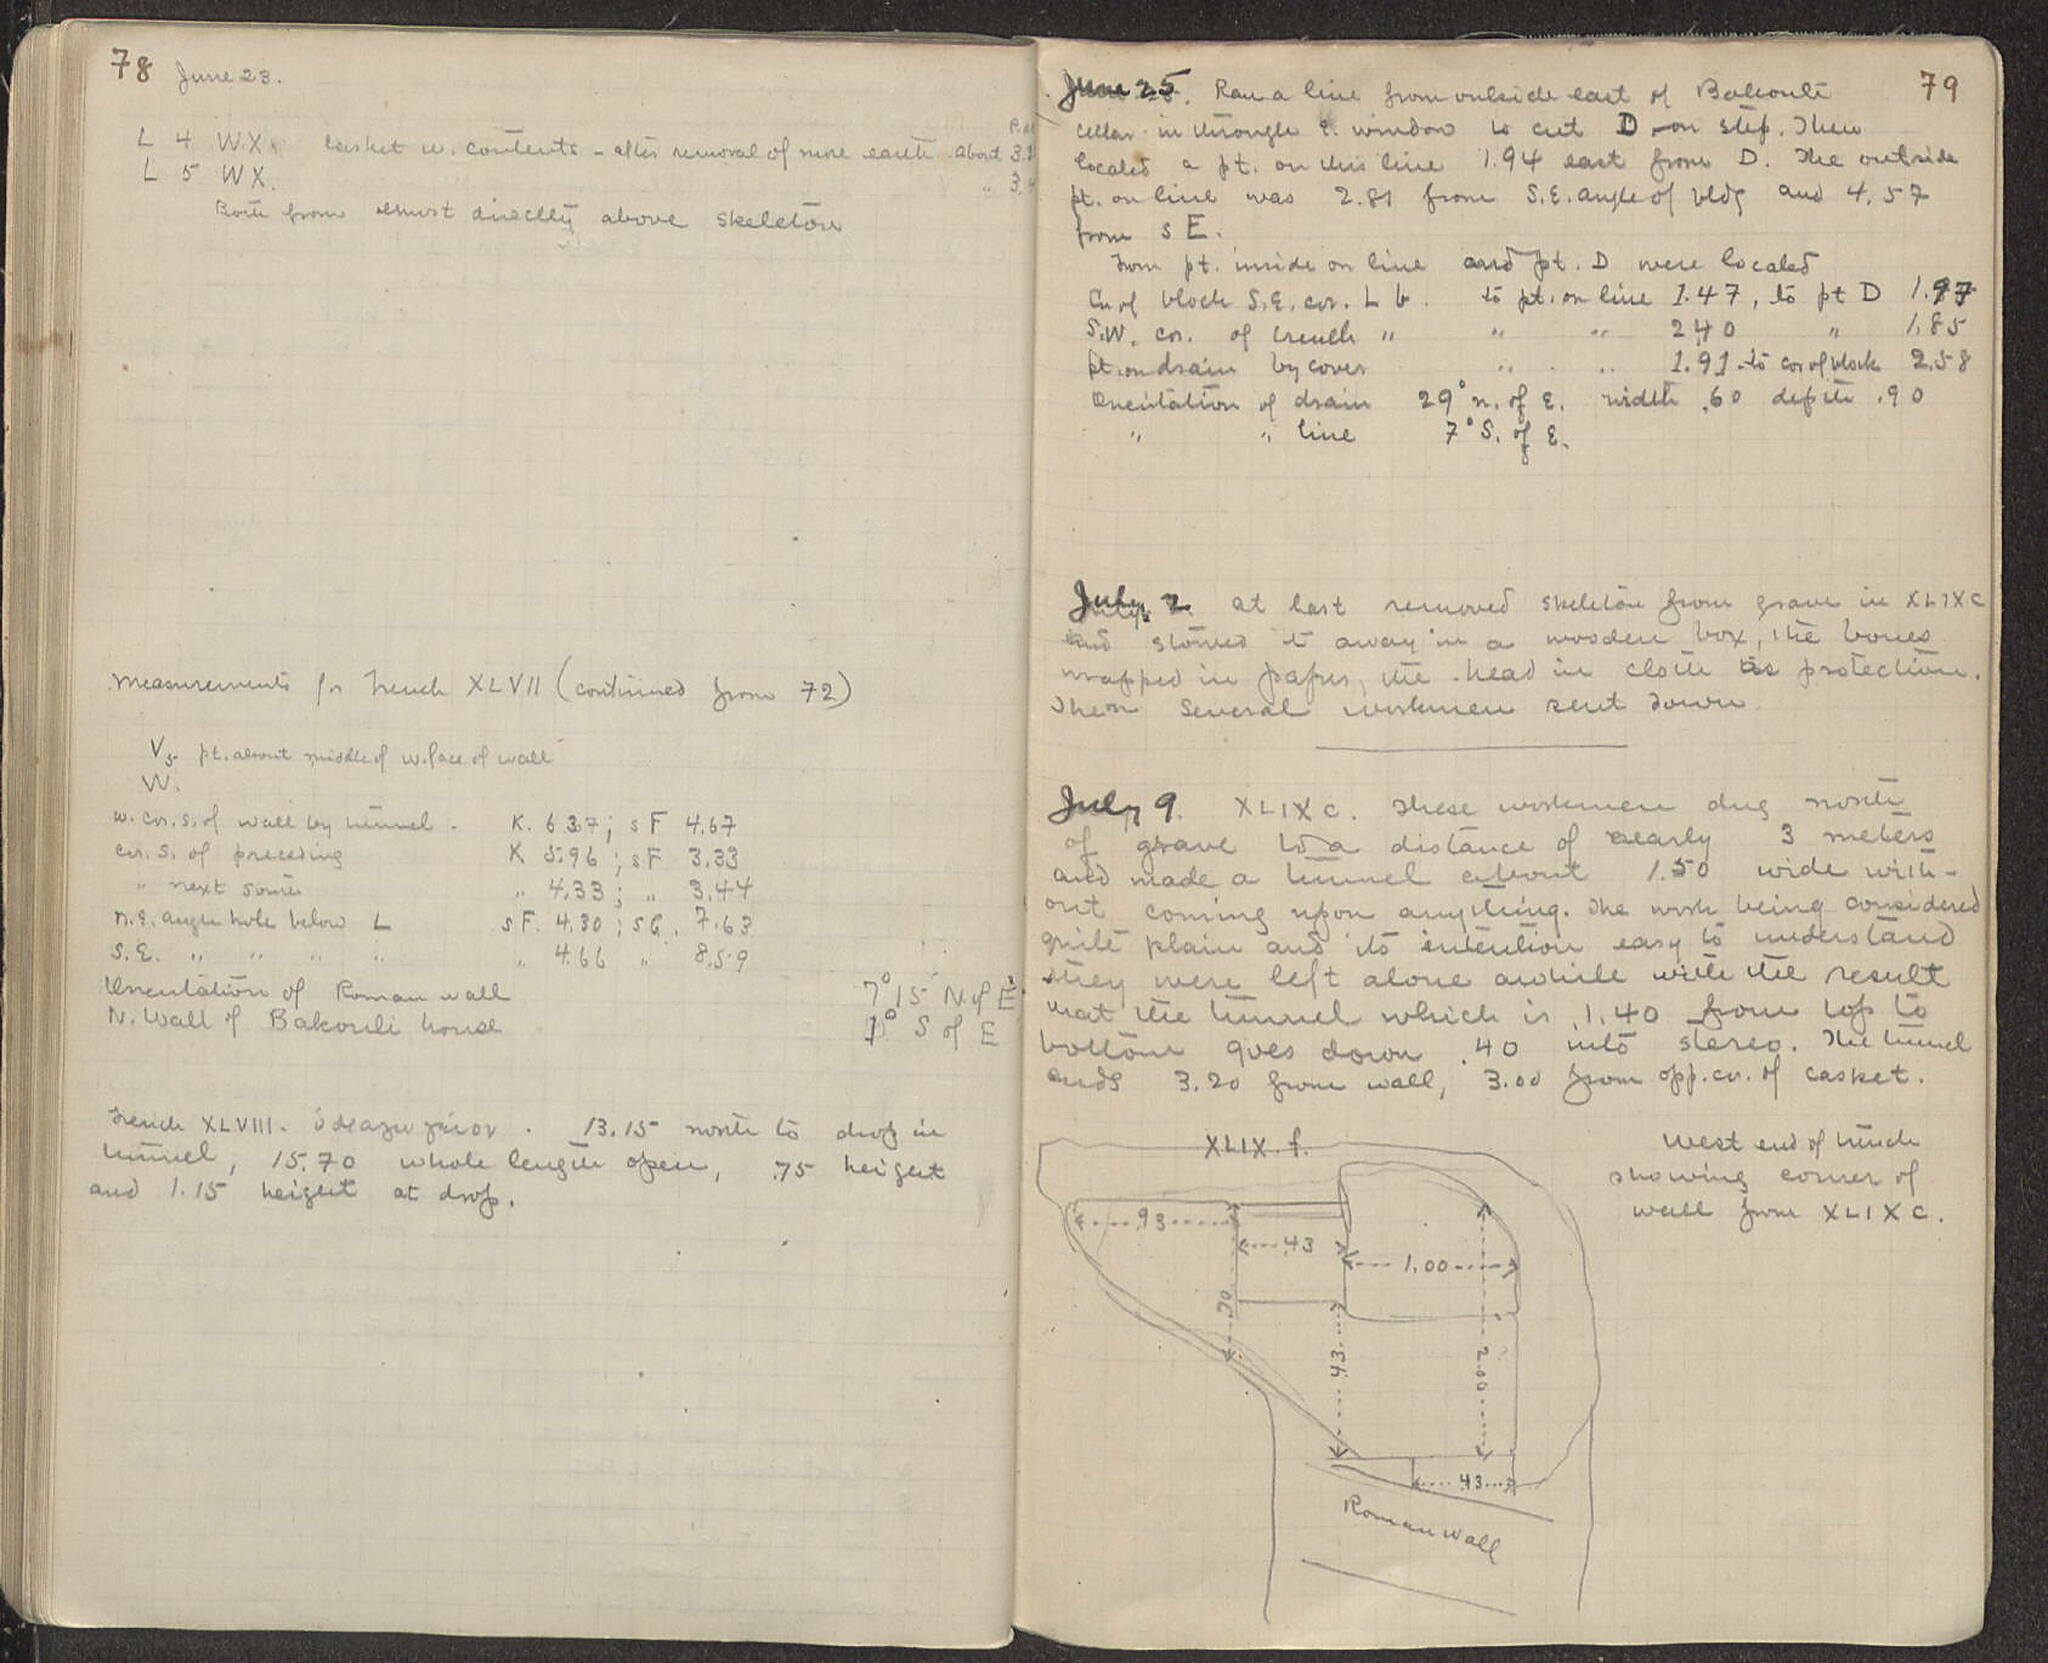 78 June 23.
L 4 W.X. casket w. contents - after removal of more earth about
L 5 W X. "
Both from almost directly above skeleton
Measurements for Trench XLVII (continued from 72)
V5 pt. about middle of w. face of wall
W.
w. cor. s. of wall by tunnel. K. 6.37; sF 4.67
cor. S. of preceding K 5.96; sF 3.33
" next south " 4.33; " 3.44
n.e. angle hole below L sF. 4.30; sG. 7.63
S.E. " " " " " 4.66 " 8.59
Orientation of Roman wall 7° 15' N of E
N. Wall of Bakouli house 7° S of E
Trench XLVIII. 13.15 north to drop in
tunnel, 15.70 whole length open, .75 height
and 1.15 height at drop.
79
June 25. Ran a line from outside east of Bakouli
cellar in through e. window to cut D on step. Then
located a pt. on this line 1.94 east from D. The outside
pt. on line was 2.81 from S.E. angle of bldg and 4.57
from sE.
From pt. inside on line and pt. D were located
Cor of block S.E. cor. L b. to pt. on line 1.47, to pt D 1.97
S.W. cor. of trench " " " 2.40 " 1.85
pt. on drain by cover " " 1.91 to cor of block 2.58
Orientation of drain 29° n. of E. width .60 depth .90
" " line 7° S. of E.
July 2 at last removed skeleton from grave in XLIXC
and stowed it away in a wooden box, the bones
wrapped in paper, the head in cloth as protection.
Then several workmen sent down
July 9. XLIXC. These workmen dug north
of grave to a distance of nearly 3 meters
and made a tunnel about 1.50 wide with-
out coming upon anything. The work being considered
quite plain and its intention easy to understand
they were left alone awhile with the result
that the tunnel which is 1.40 from top to
bottom goes down .40 into stereo. The tunnel
ends 3.20 from wall, 3.00 from opp. cor. of casket.
XLIX f.
West end of trench
showing corner of
wall from XLIXC.
.93
.43
1.00
.70
.43
2.00
.43
Roman wall